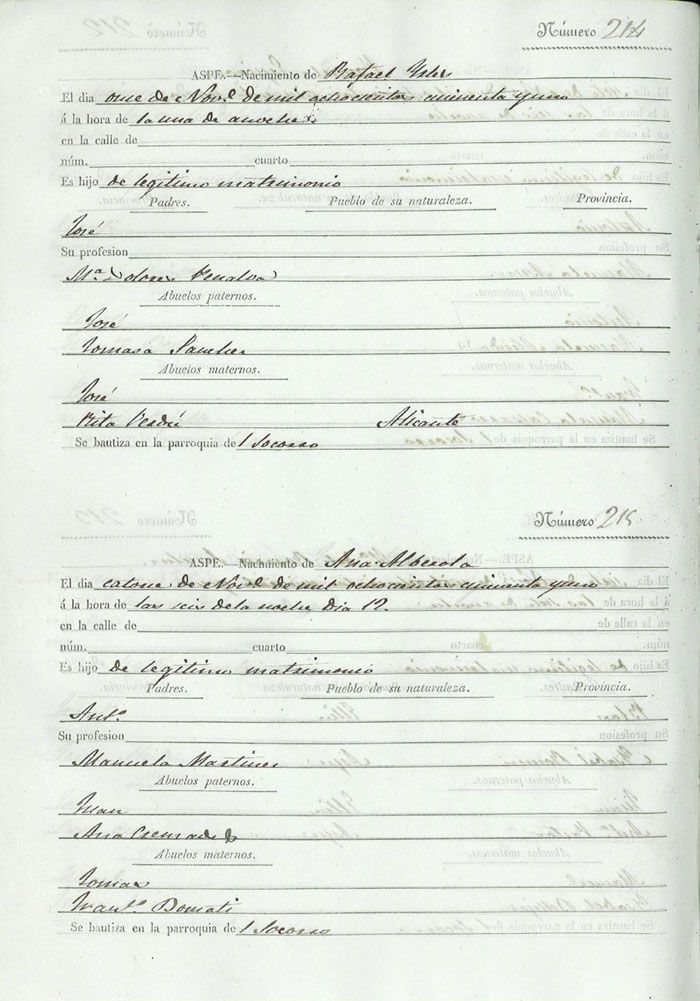 Número 214
ASPE.—Nacimiento de Rafael
El dia once de Nov.e de mil ochocientos cincuenta y uno
á la hora de la una de anoche
en la calle de
núm. cuarto
Es hijo de legitimo matrimonio
Padres. Pueblo de su naturaleza. Provincia.
José
Su profesion
M.a Dolores Penalva
Abuelos paternos.
José
Tomasa Sanchez
Abuelos maternos.
José
Rita Verdú Alicante
Se bautiza en la parroquia del Socorro
Número 215
ASPE.—Nacimiento de Ana Alberola
El dia catorce de Nov.e de mil ochocientos cincuenta y uno
á la hora de las seis de la noche dia 12.
en la calle de
núm. cuarto
Es hijo de legitimo matrimonio
Padres. Pueblo de su naturaleza. Provincia.
Ant.o
Su profesion
Manuela Martinez
Abuelos paternos.
Juan
Ana Cremades
Abuelos maternos.
Tomas
Fran.ca
Se bautiza en la parroquia del Socorro